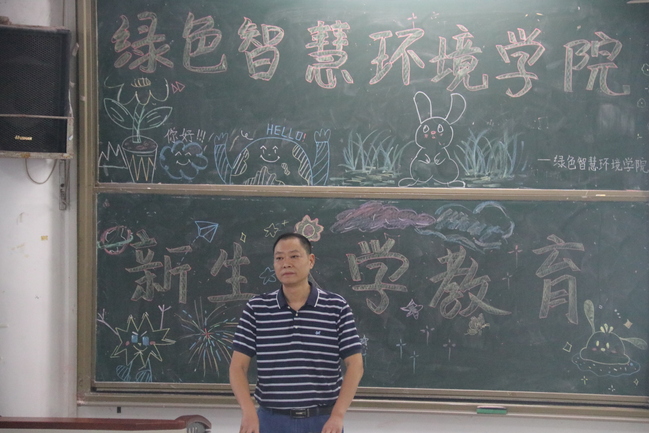 绿色智慧环境学院
你好!!!
HELLO!
—绿色智慧环境学院
新生 学教育